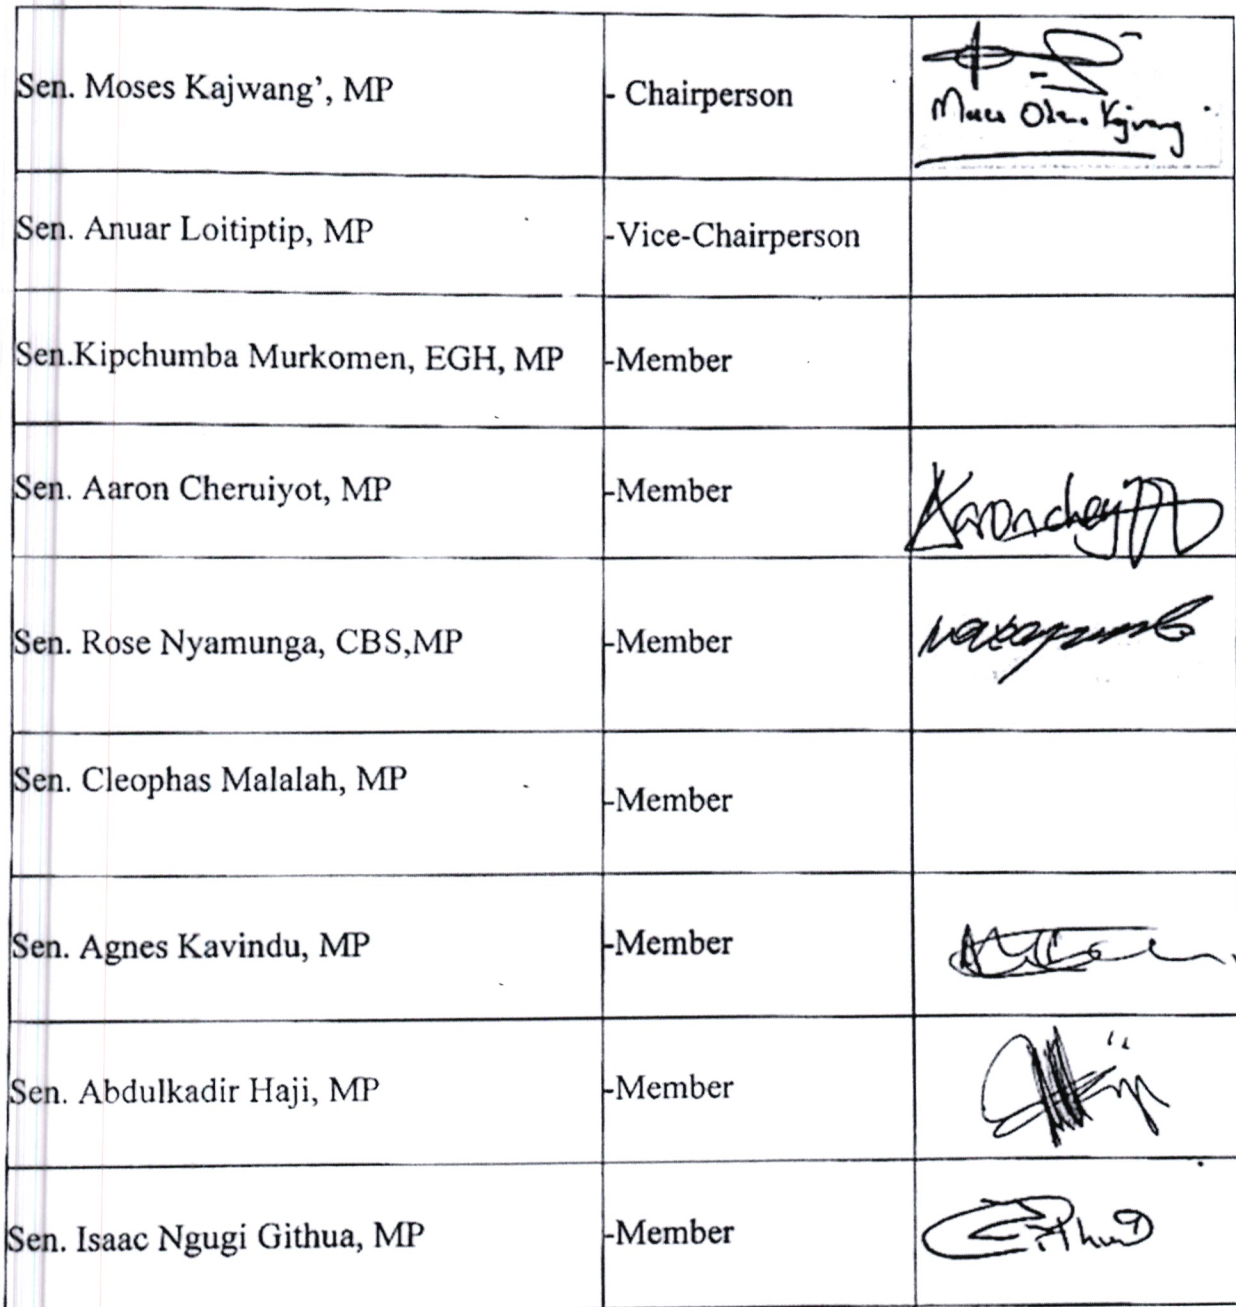 Sen. Moses Kajwang’, MP
- Chairperson
Sen. Anuar Loitiptip, MP
-Vice-Chairperson
Sen.Kipchumba Murkomen, EGH, MP
-Member
Sen. Aaron Cheruiyot, MP
-Member
Sen. Rose Nyamunga, CBS,MP
-Member
Sen. Cleophas Malalah, MP
-Member
Sen. Agnes Kavindu, MP
-Member
Sen. Abdulkadir Haji, MP
-Member
Sen. Isaac Ngugi Githua, MP
-Member